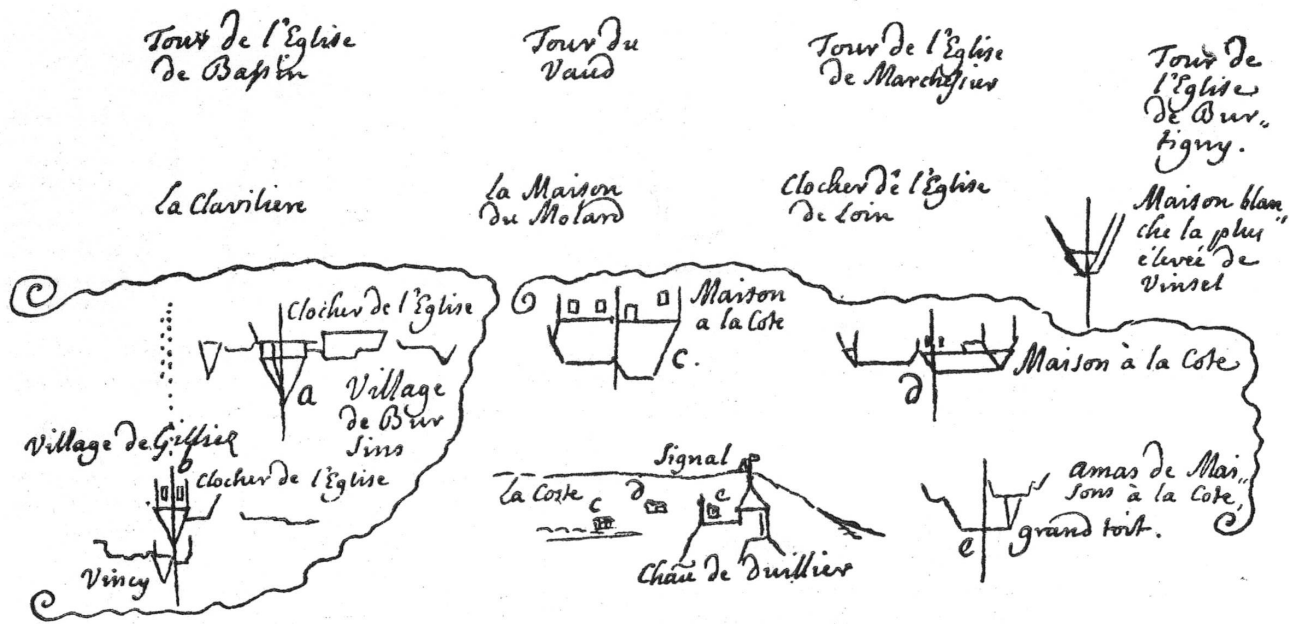 Tour de l'Eglise
de Bassin
Tour du
Vaud
Tour de l'Eglise
de Marchissier
Tour de
l'Eglise
de Bur„
tigny.
la Claviliere
la Maison
du Molard
Clocher de l'Eglise
de Loin
Maison blan„
che la plus
élevée de
Vinsel
Clocher de l'Eglise
a
Village
de Bur
sins
Maison
a la Cote
C.
Maison à la Cote
d
Village de Gillier
b
Clocher de l'Eglise
Vincy
Signal
La Coste
C
d
e
Chau de Duillier
amas de Mai„
sons à la Cote,
grand toit.
e